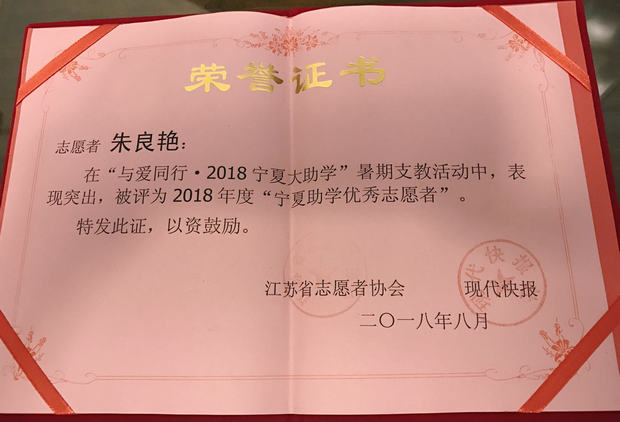 荣誉证书
志愿者 朱良艳：
在“与爱同行·2018 宁夏大助学”暑期支教活动中，表
现突出，被评为 2018 年度“宁夏助学优秀志愿者”。
特发此证，以资鼓励。
江苏省志愿者协会 现代快报
二〇一八年八月